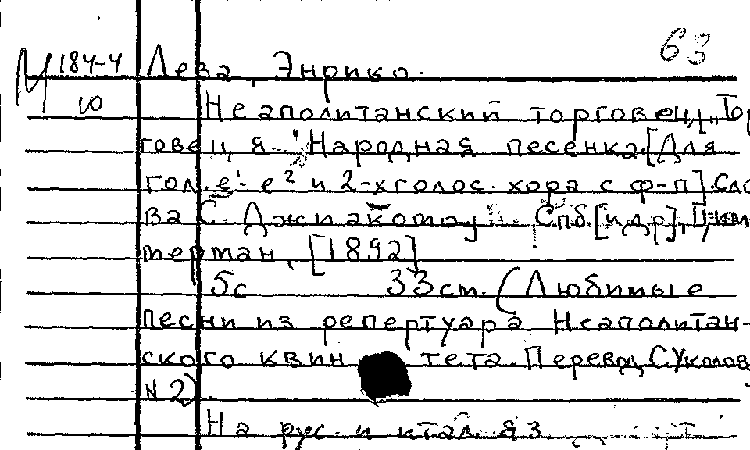 63
М 184-4 Лева, Энрико.
10 Неаполитанский торговец „Тор
говец я" Народная песенка. [Для
гол. e¹-e² и 2-х голос. хора с ф-п] Сло
ва С. Джиакомо Спб. [и др], Цим
мерман, [1892]
5с 33см. (Любимые
песни из репертуара Неаполитан-
ского квинтета. Перевод С. Уколов
N 2).
На рус. и итал. яз.